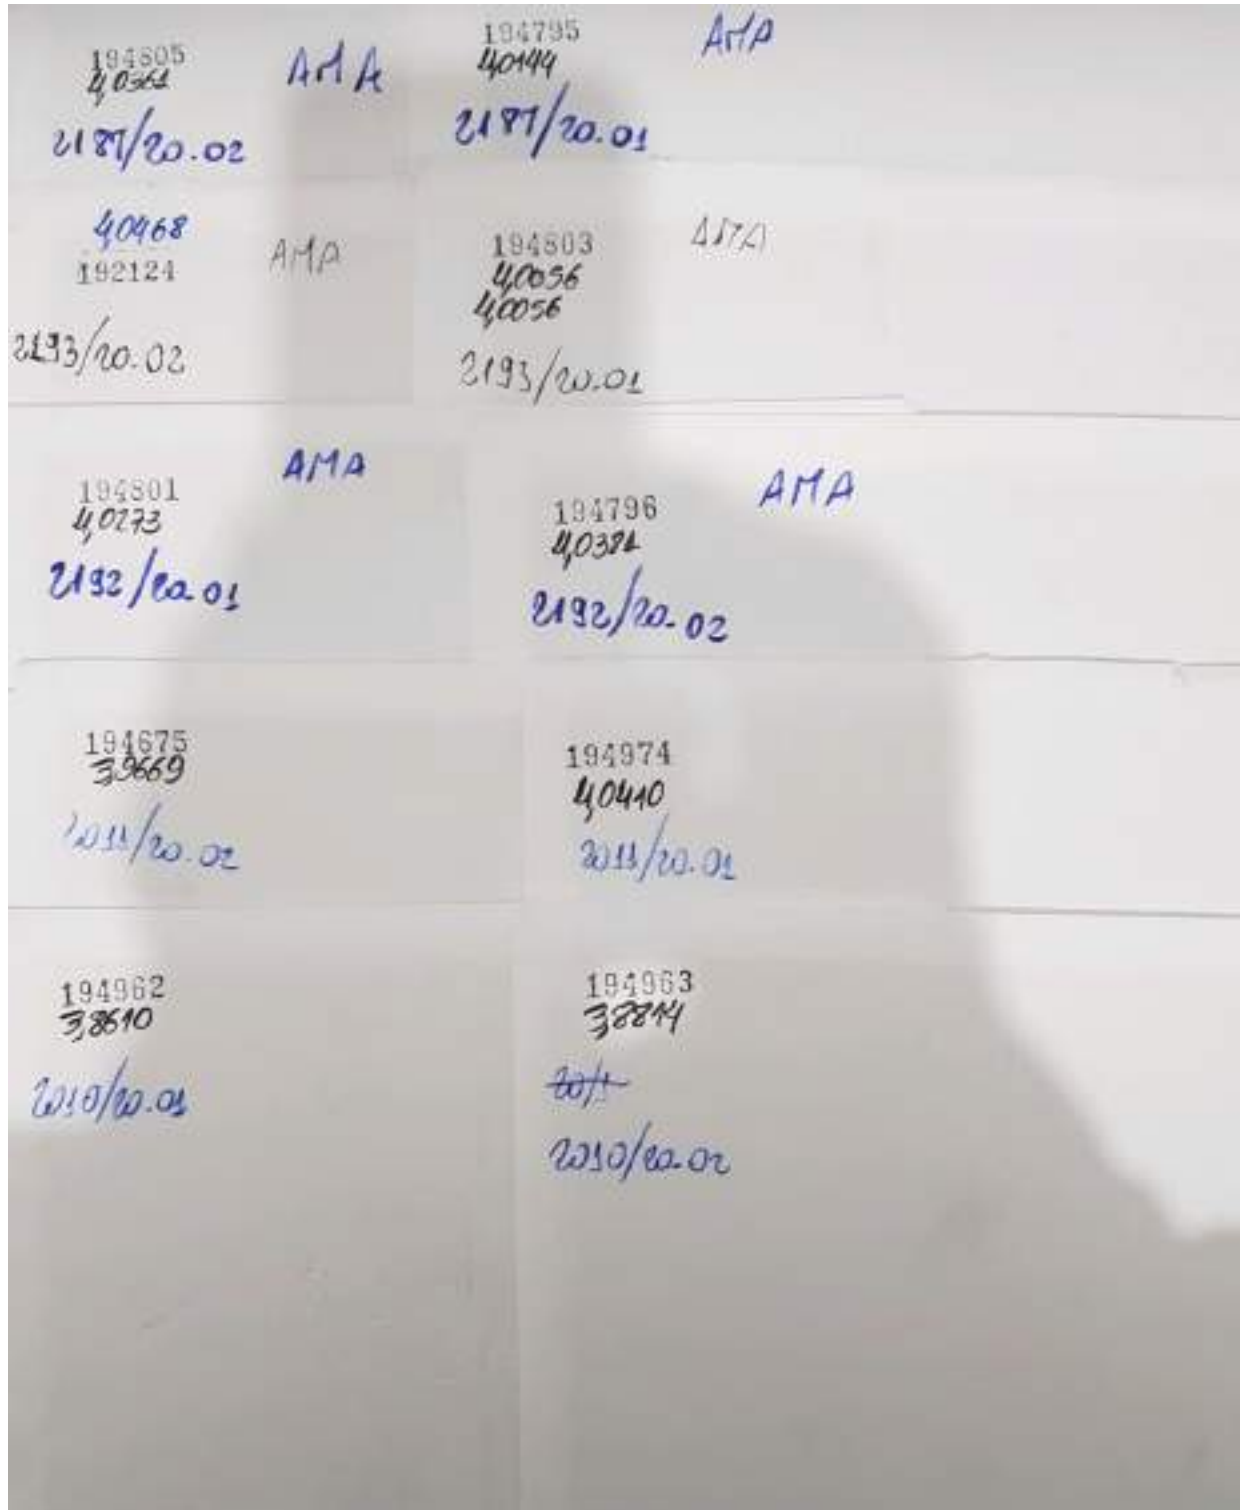 194805
4,0361
AMA
2187/20.02
194795
4,0144
AMA
2187/20.01
4,0468
192124
AMA
2193/20.02
194803
4,0056
4,0056
AMA
2193/20.01
194801
4,0273
AMA
2192/20.01
194796
4,0381
AMA
2192/20.02
194675
3,9669
2011/20.02
194974
4,0410
2011/20.01
194962
3,8610
2010/20.01
194963
3,8814
2010/20.02